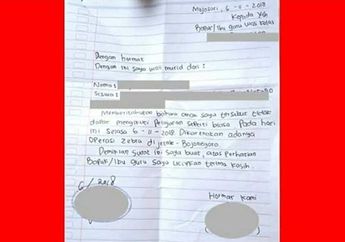 Mojosari, 6 - 11 - 2018
Kepada Yth
Bapak/Ibu guru wali kelas
Dengan hormat
Dengan ini saya wali murid dari :
Nama :
Siswa :
Memberitahukan bahwa anak saya tersebut tidak
dapat mengikuti Pelajaran seperti biasa Pada hari
ini Selasa 6 - 11 - 2018 Dikarenakan adanya
Operasi Zebra di - Bojonegoro.
Demikian surat ini saya buat, atas Perhatian
Bapak/Ibu guru saya ucapkan terima kasih.
6/ 2018
Hormat Kami